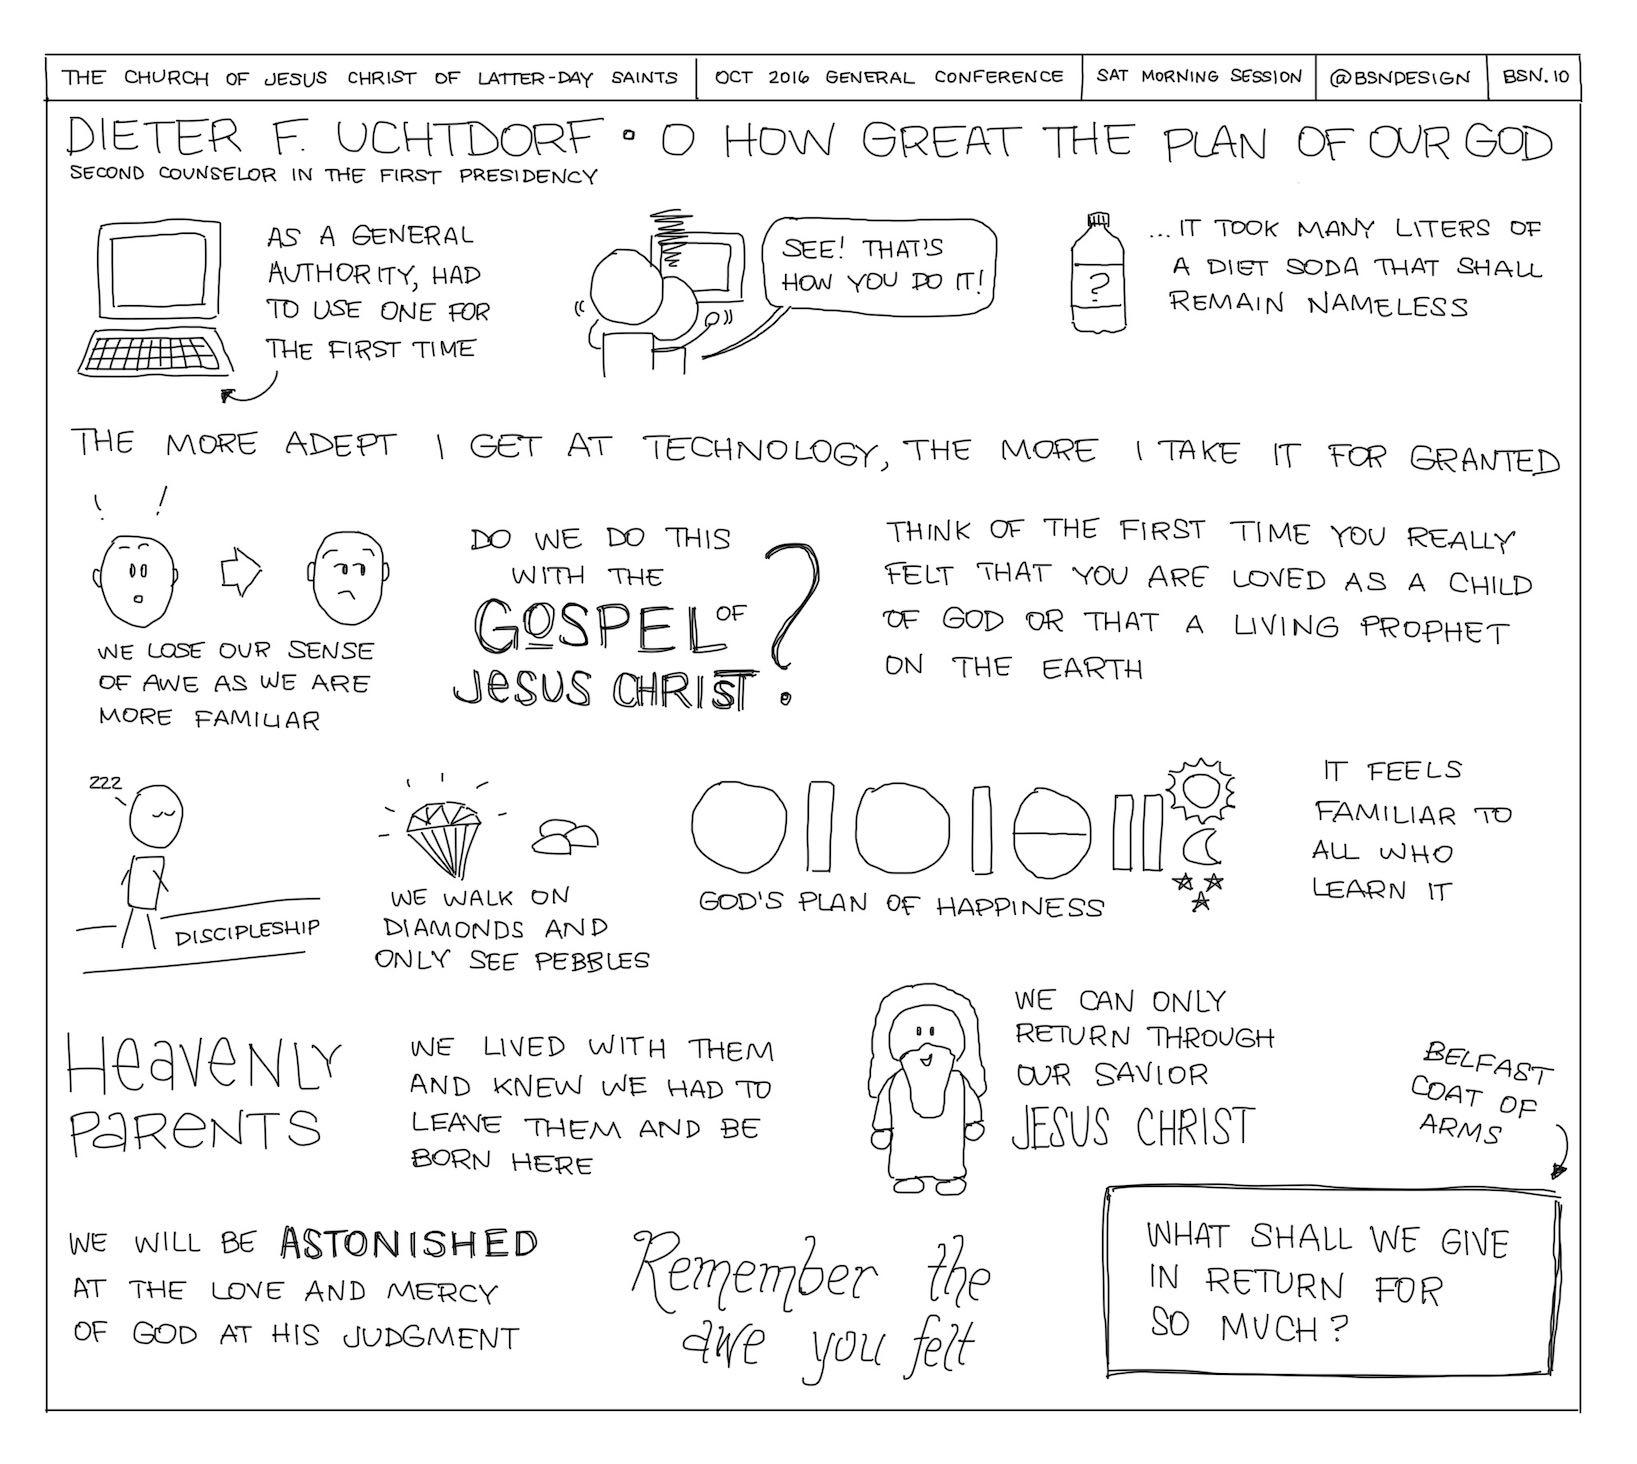 THE CHURCH OF JESUS CHRIST OF LATTER-DAY SAINTS
OCT 2016 GENERAL CONFERENCE
SAT MORNING SESSION
@BSNDESIGN
BSN.IO
DIETER F. UCHTDORF • O HOW GREAT THE PLAN OF OUR GOD
SECOND COUNSELOR IN THE FIRST PRESIDENCY
AS A GENERAL
AUTHORITY, HAD
TO USE ONE FOR
THE FIRST TIME
SEE! THAT'S
HOW YOU DO IT!
?
...IT TOOK MANY LITERS OF
A DIET SODA THAT SHALL
REMAIN NAMELESS
THE MORE ADEPT I GET AT TECHNOLOGY, THE MORE I TAKE IT FOR GRANTED
! !
WE LOSE OUR SENSE
OF AWE AS WE ARE
MORE FAMILIAR
DO WE DO THIS
WITH THE
GOSPEL OF
JESUS CHRIST?
THINK OF THE FIRST TIME YOU REALLY
FELT THAT YOU ARE LOVED AS A CHILD
OF GOD OR THAT A LIVING PROPHET
ON THE EARTH
ZZZ
DISCIPLESHIP
WE WALK ON
DIAMONDS AND
ONLY SEE PEBBLES
GOD'S PLAN OF HAPPINESS
IT FEELS
FAMILIAR TO
ALL WHO
LEARN IT
HEAVENLY
PARENTS
WE LIVED WITH THEM
AND KNEW WE HAD TO
LEAVE THEM AND BE
BORN HERE
WE CAN ONLY
RETURN THROUGH
OUR SAVIOR
JESUS CHRIST
BELFAST
COAT OF
ARMS
WE WILL BE ASTONISHED
AT THE LOVE AND MERCY
OF GOD AT HIS JUDGMENT
Remember the
awe you felt
WHAT SHALL WE GIVE
IN RETURN FOR
SO MUCH?